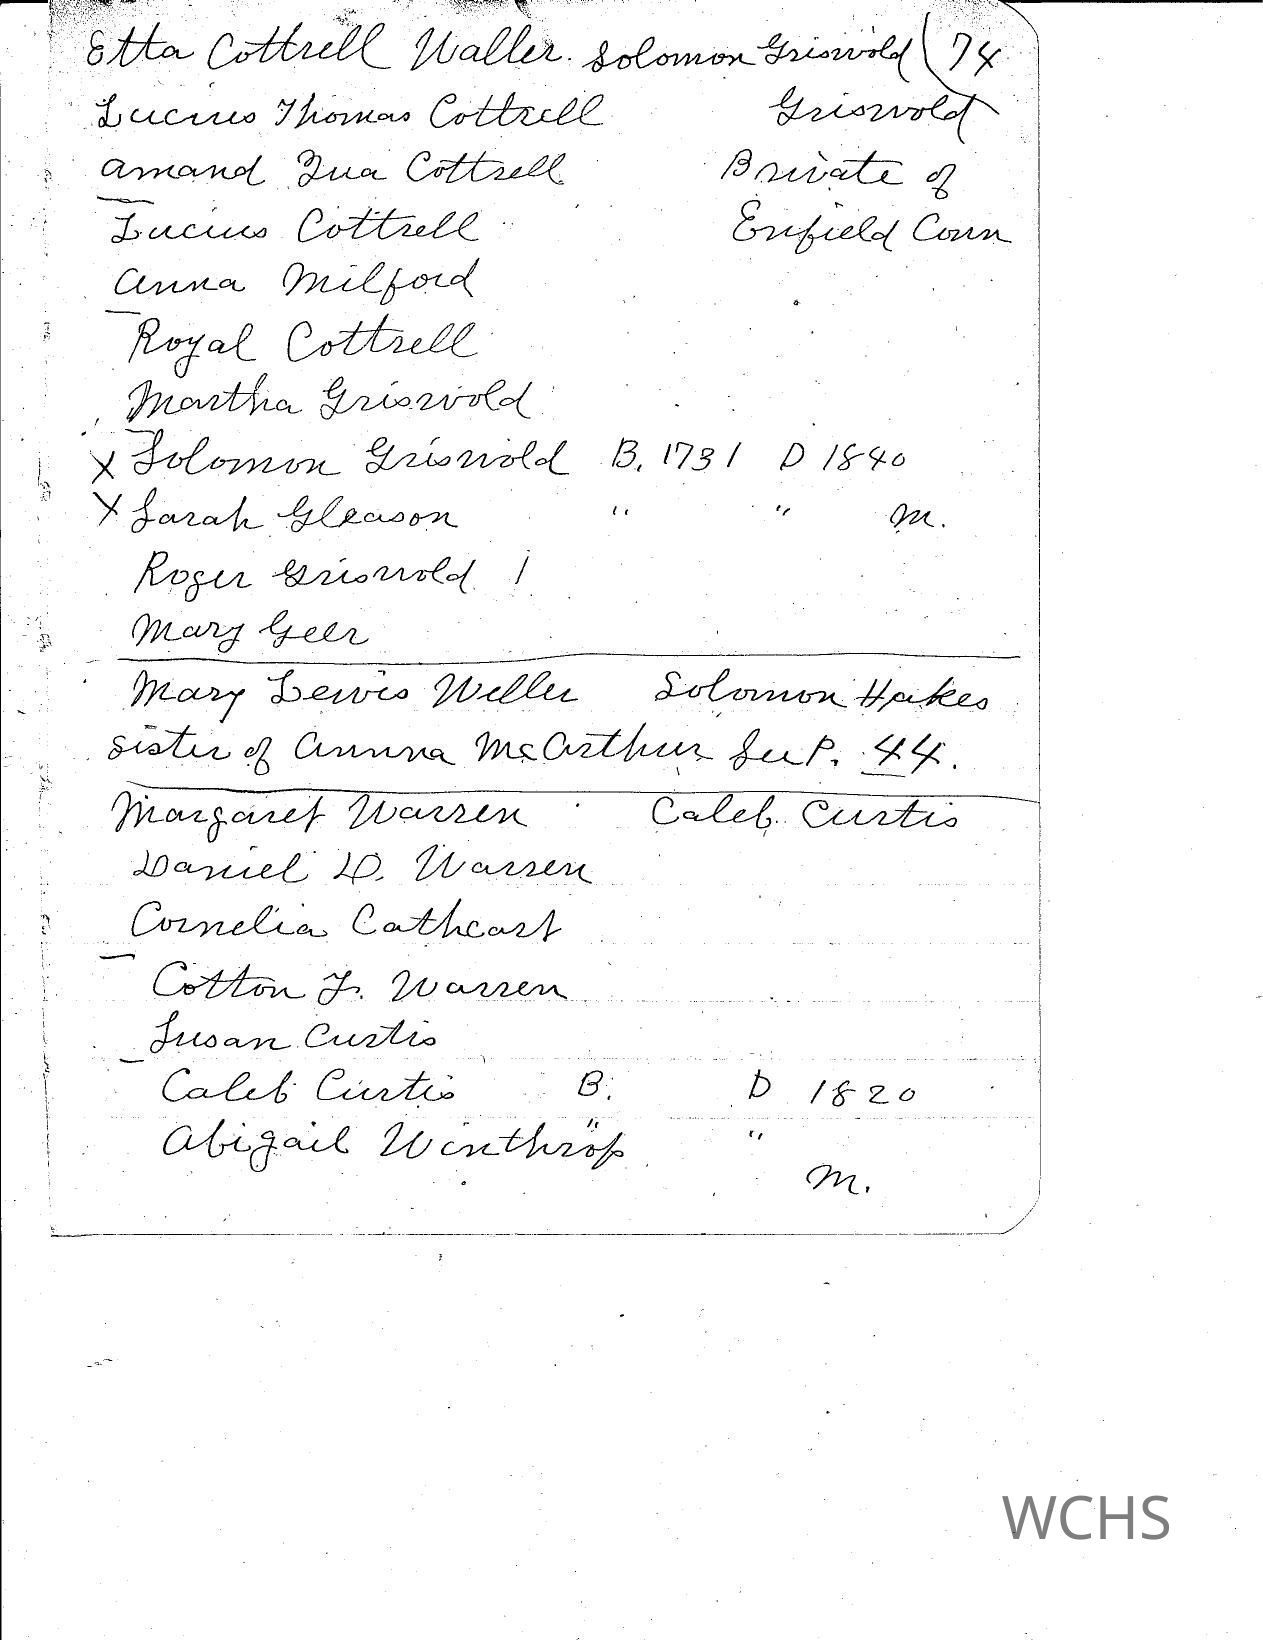 Etta Cottrell Waller. Solomon Griswold (74
Lucius Thomas Cottrell Griswold
Amand Qua Cottrell Private of
Lucius Cottrell Enfield Conn
Anna Milford
Royal Cottrell
Martha Griswold
X Solomon Griswold B. 1731 D 1840
X Sarah Gleason " " M.
Roger Griswold 1
Mary Geer
Mary Lewis Weller Solomon Hakes
sister of Annna McArthur See P. 44.
Margaret Warren Caleb Curtis
Daniel D. Warren
Cornelia Cathcart
Cotton F. Warren
Susan Curtis
Caleb Curtis B. D 1820
Abigail Winthrop " "
M.
WCHS